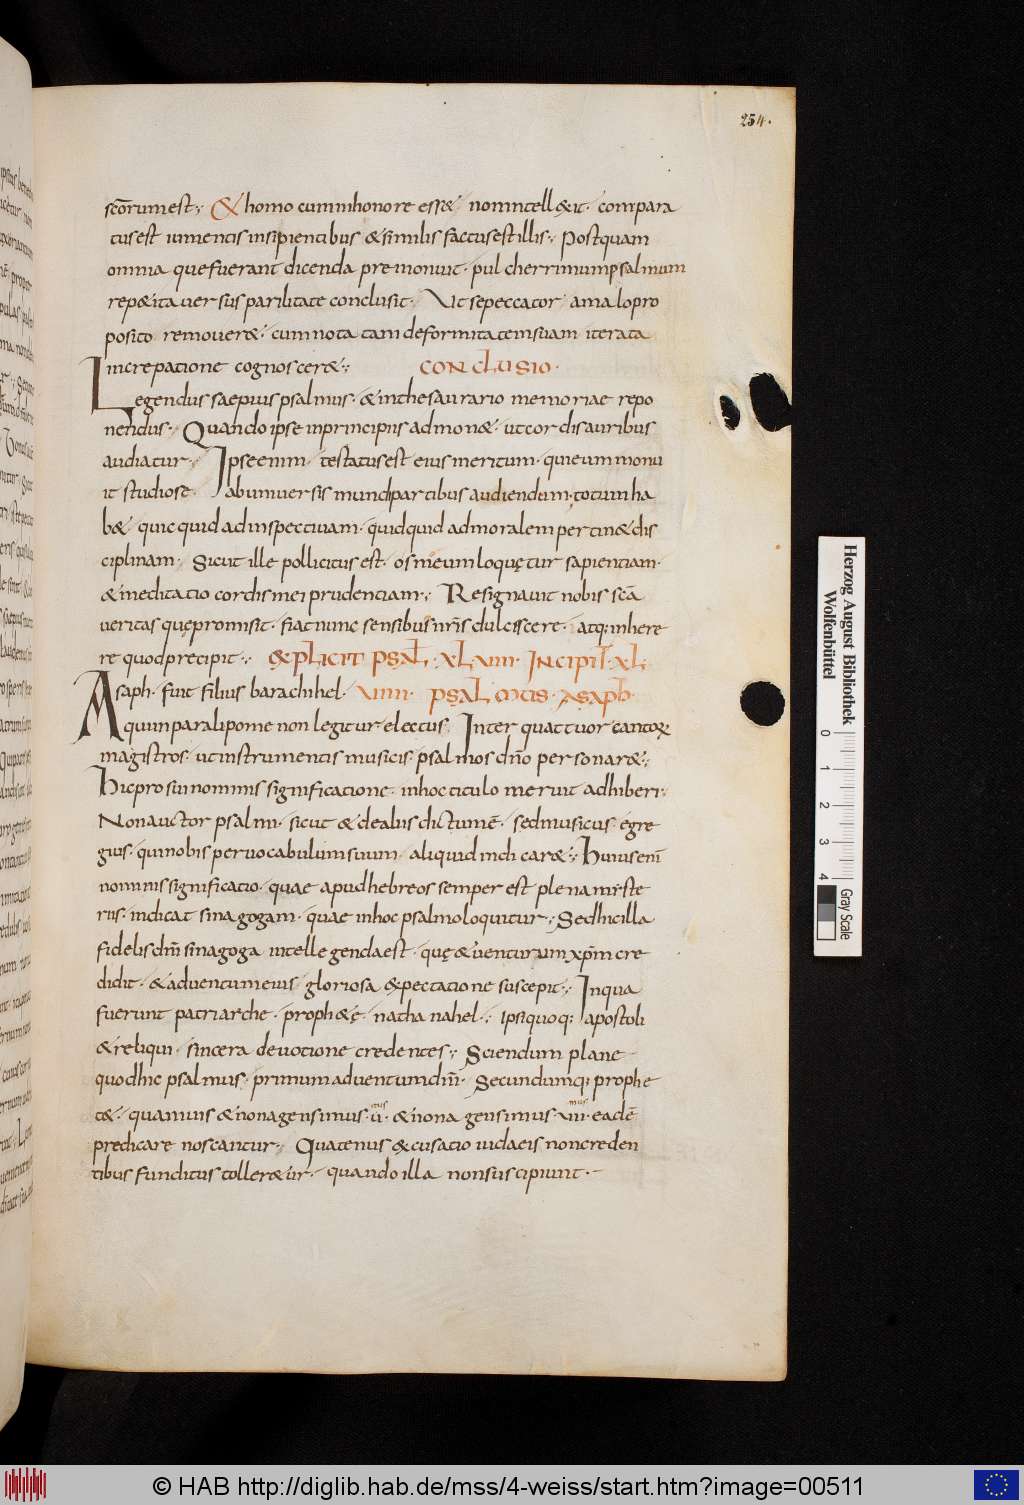 254.
sc̄orum est; & homo cum inhonore ess&; non intell&it· compara
tus est iumentis insipientibus & similis factus est illis; Postquam
omnia que fuerant dicenda premonuit· pulcherrimum psalmum
rep&ita versus parilitate conclusit· Ut se peccator a malo pro
posito remouer&; cum notatam deformitatem suam iterata
increpatione cognoscer&;
CONCLUSIO·
Legendus saepius psalmus· & in thesaurario memoriae repo
nendus· Quando ipse in principiis admon&· ut cordis auribus
audiatur; Ipse enim testatus est eius meritum· qui eum monu
it studiose· ab uniuersis mundi partibus audiendum· totum ha
b& quicquid ad inspectiuam· quidquid ad moralem pertin& dis
ciplinam· Sicut ille pollicitus est· os meum loquętur sapientiam·
& meditatio cordis mei prudentiam; Resignauit nobis sc̄a
veritas quę promisit· fiat nunc sensibus nr̄is dulciscere· atq; inhere
re quod precipit;
EXPLICIT PSAL· XLVIII· INCIPIT· XL
VIIII· PSALMUS· ASAPH·
Asaph· fuit filius barachihel·
qui in paralipome non legitur electus Inter quattuor cantor
magistros· ut instrumentis musicis· psalmos dn̄o personar&;
Hic pro sui nominis significatione· in hoc titulo meruit adhiberi·
Non auctor psalmi· sicut & de aliis dictum ē· sed musicus· egre
gius· qui nobis per vocabulum suum· aliquid indicar&; Huius eni
nominis significatio· quae apud hebreos semper est plena miste
riis· indicat sinagogam· quae in hoc psalmo loquitur; Sed hic illa
fidelis dn̄i sinagoga intellegenda est· quę & uenturum xpm̄ cre
didit· & aduentum eius gloriosa expectatione suscepit; In qua
fuerunt patriarche· proph&ę· nathanahel; Ipsi quoq; apostoli
& reliqui· sincera deuotione credentes; Sciendum plane
quod hic psalmus· primum aduentum dn̄i· Secundumq; prophe
t&· quamuis & nonagensimus· u·mus & nonagensimus· xiii·mus eadē
predicare noscantur; Quatenus excusatio iudaeis non creden
tibus funditus toller&ur· quando illa non suscipiunt·
Herzog August Bibliothek
Wolfenbüttel
0 1 2 3 4
Gray Scale
© HAB http://diglib.hab.de/mss/4-weiss/start.htm?image=00511